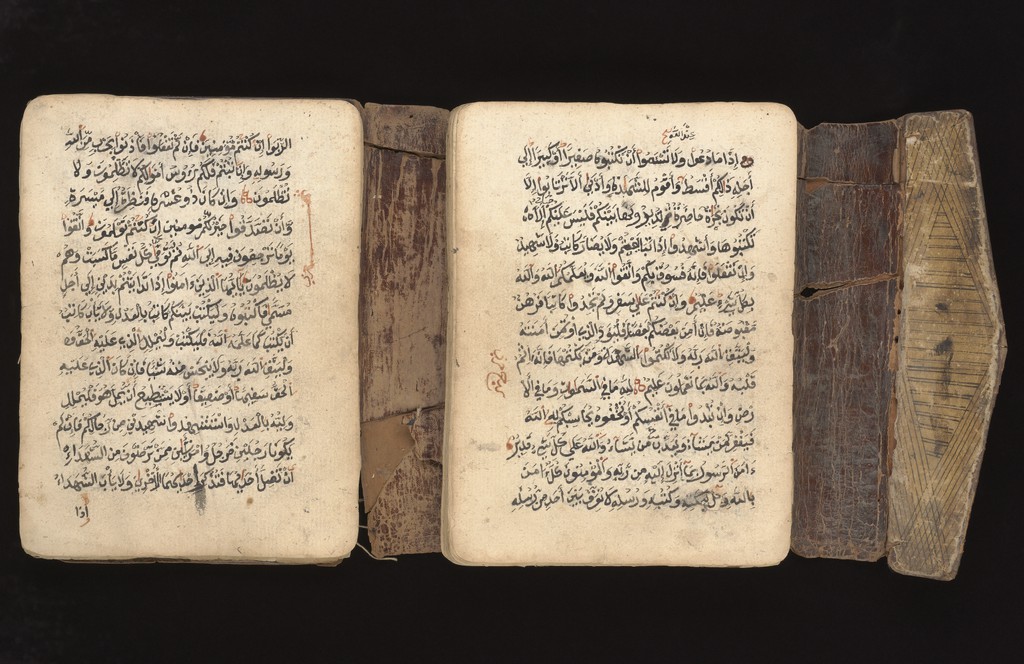 الربوا إن كنتم مؤمنين فإن لم تفعلوا فأذنوا بحرب من الله
ورسوله وإن تبتم فلكم رءوس أمولكم لا تظلمون ولا
تظلمون وإن كان ذو عسرة فنظرة إلى ميسرة
وأن تصدقوا خير لكم مومنين إن كنتم تعلمون واتقوا
يوما ترجعون فيه إلى الله ثم توفى كل نفس ما كسبت وهم
لا يظلمون يأيها الذين ءامنوا إذا تداينتم بدين إلى أجل
مسمى فاكتبوه وليكتب بينكم كاتب بالعدل ولا يأب كاتب
أن يكتب كما علمه الله فليكتب وليملل الذي عليه الحق
وليتق الله ربه ولا يبخس منه شيئا فإن كان الذي عليه
الحق سفيها أو ضعيفا أو لا يستطيع أن يمل هو فليملل
وليه بالعدل واستشهدوا شهيدين من رجالكم فإن لم
يكونا رجلين فرجل وامرأتان ممن ترضون من الشهداء
أن تضل إحديهما فتذكر إحديهما الأخرى ولا يأب الشهداء
إذا
إذا ما دعوا ولا تسئموا أن تكتبوه صغيرا أو كبيرا إلى
أجله ذلكم أقسط وأقوم للشهادة وأدنى ألا ترتابوا إلا
أن تكون تجارة حاضرة تديرونها بينكم فليس عليكم جناح ألا
تكتبوها وأشهدوا إذا تبايعتم ولا يضار كاتب ولا شهيد
وإن تفعلوا فإنه فسوق بكم واتقوا الله ويعلمكم الله والله
بكل شيء عليم وإن كنتم على سفر ولم تجدوا كاتبا فرهن
مقبوضة فإن أمن بعضكم بعضا فليؤد الذي اؤتمن أمنته
وليتق الله ربه ولا تكتموا الشهدة ومن يكتمها فإنه ءاثم
قلبه والله بما تعملون عليم لله ما في السموات وما في الا
رض وإن تبدوا ما في أنفسكم أو تخفوه يحاسبكم به الله
فيغفر لمن يشاء ويعذب من يشاء والله على كل شيء قدير
ءامن الرسول بما أنزل إليه من ربه والمؤمنون كل ءامن
بالله وملئكته وكتبه ورسله لا نفرق بين أحد من رسله